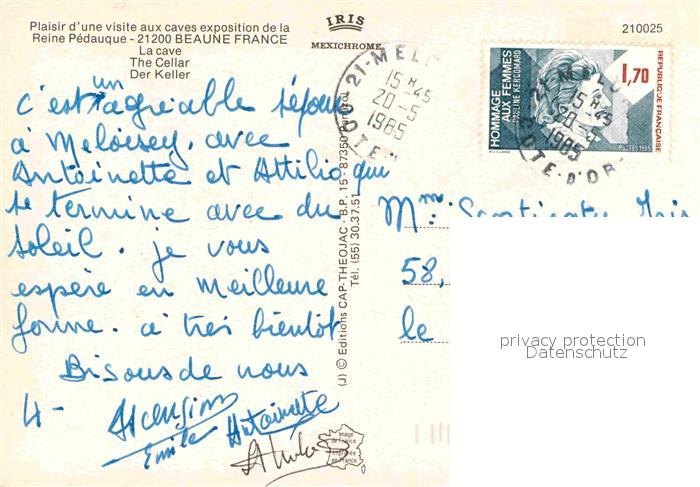 Plaisir d'une visite aux caves exposition de la
Reine Pédauque - 21200 BEAUNE FRANCE
La cave
The Cellar
Der Keller
IRIS
MEXICHROME
210025
c'est un agréable séjour
à Meloisey. avec
Antoinette et Attilio qui
se termine avec du
soleil. je vous
espère en meilleure
forme. à très bientôt
Bisous de nous
4 -
Ascension
Emile Antoinette
(J) © Editions CAP-THEOJAC - B.P. 15 - 87350 Panazol
Tél. (55) 30.37.51
21 - MELO
15 H -45
20 -5
1985
CÔTE
HOMMAGE
AUX FEMMES
PAULINE KERGOMARD
1,70
REPUBLIQUE FRANÇAISE
POSTES 1985
21 - MELO
15 H -45
20 -5
1985
CÔTE-D'OR
Mme Iris
58,
le
privacy protection
Datenschutz
Image
de France
Imprimée
en France